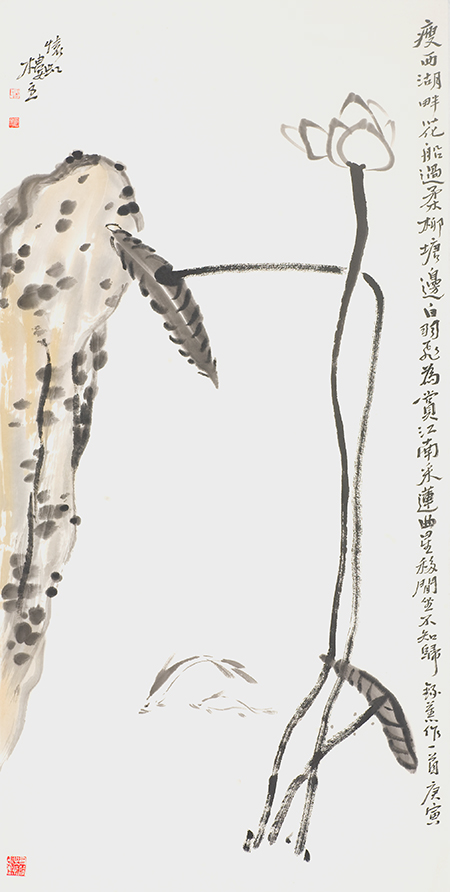 瘦西湖畔花船過柔柳塘邊白羽飛為賞江南采蓮曲星移閒坐不知歸 錄蕉作一首庚寅
懷虹
樓主